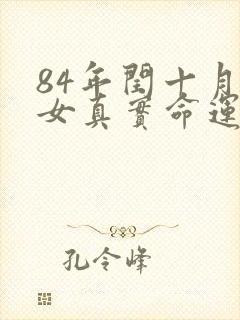 84年閏十月
女真實命運
孔令峰